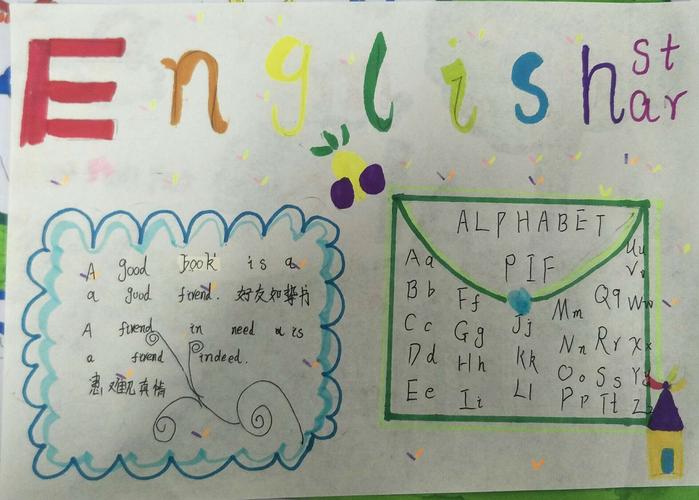 English
st
ar
A good book is a
a good friend. 好友如挚书
A friend in need a is
a friend indeed.
患难见真情
ALPHABET
PIF
Aa
Bb
Cc
Dd
Ee
Ff
Gg
Hh
Ii
Jj
Kk
Ll
Mm
Nn
Oo
Pp
Qq
Rr
Ss
Tt
Uu
Vv
Ww
Xx
Yy
Zz